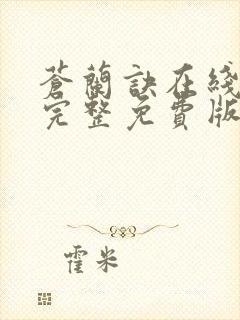 蒼蘭訣在綫
完整免費版
霍米